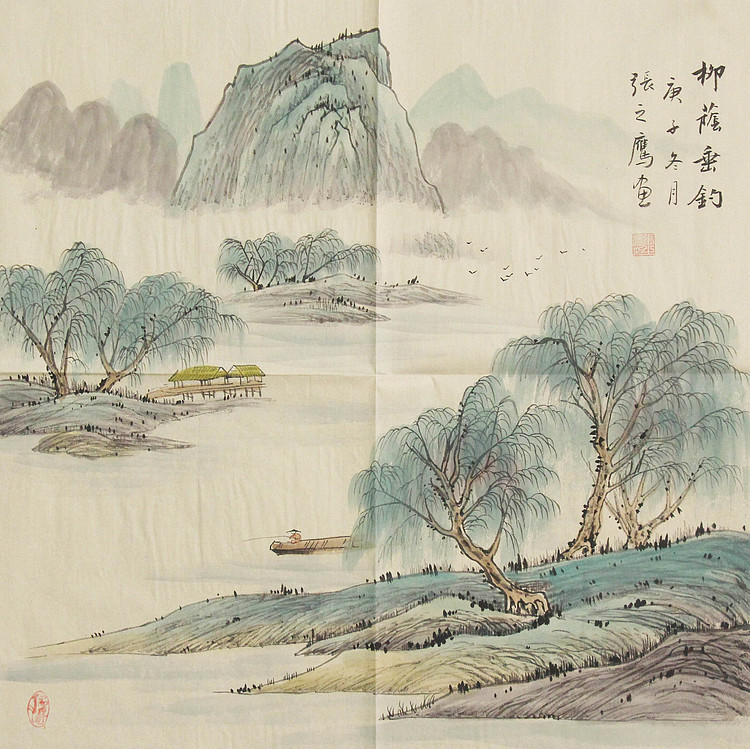 柳蔭垂釣
庚子冬月
張之鷹画